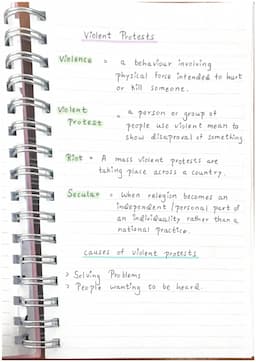 Violent Protests
Violence = a behaviour involving
physical force intended to hurt
or kill someone.
Violent Protest = a person or group of
people use violent mean to
show disaproval of something
Riot = A mass violent protests are
taking place across a country.
Secular = When relegion becomes an
independent / personal part of
an individuality rather than a
national practice.
causes of violent protests
> Solving Problems
> People wanting to be heard.